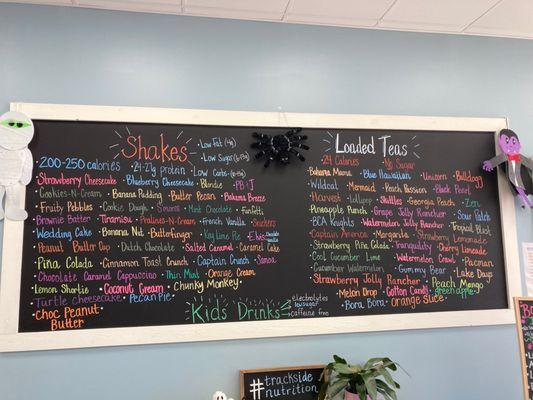 Shakes
• Low Fat (4g)
• Low Sugar
• Low Carbs
• 200-250 calories • 24-27g protein
• Strawberry Cheesecake • Blueberry Cheesecake • Blondie • PB+J
• Cookies-N-Cream • Banana Pudding • Butter Pecan • Bahama Breeze
• Fruity Pebbles • Cookie Dough • S'mores • Mint Chocolate • Funfetti
• Brownie Batter • Tiramisu • Pralines-N-Cream • French Vanilla • Snickers
• Wedding Cake • Banana Nut • Butterfinger • Key Lime Pie
• Peanut Butter Cup • Dutch Chocolate • Salted Caramel • Caramel Cake
• Piña Colada • Cinnamon Toast Crunch • Captain Crunch • Samoa
• Chocolate Caramel Cappuccino • Thin Mint • Orange Cream
• Lemon Shortie • Coconut Cream • Chunky Monkey
• Turtle Cheesecake • Pecan Pie
• Choc Peanut
Butter
Kids Drinks
electrolytes
low sugar
caffeine free
Loaded Teas
• 24 Calories • No Sugar
• Bahama Mama • Blue Hawaiian • Unicorn • Bulldog
• Wildcat • Mermaid • Peach Passion • Black Pearl
• Harvest • Lollipop • Skittles • Georgia Peach • Zen
• Pineapple Punch • Grape Jolly Rancher • Sour Patch
• BCA Knights • Watermelon Jolly Rancher • Tropical Blast
• Captain America • Margarita • Strawberry Lemonade
• Strawberry Piña Colada • Tranquility • Cherry Limeade
• Cool Cucumber Lime • Watermelon Crawl • Pacman
• Cucumber Watermelon • Gummy Bear • Lake Days
• Strawberry Jolly Rancher • Peach Mango
• Melon Drop • Cotton Candy • green apple
• Bora Bora • Orange Slice
#trackside
nutrition